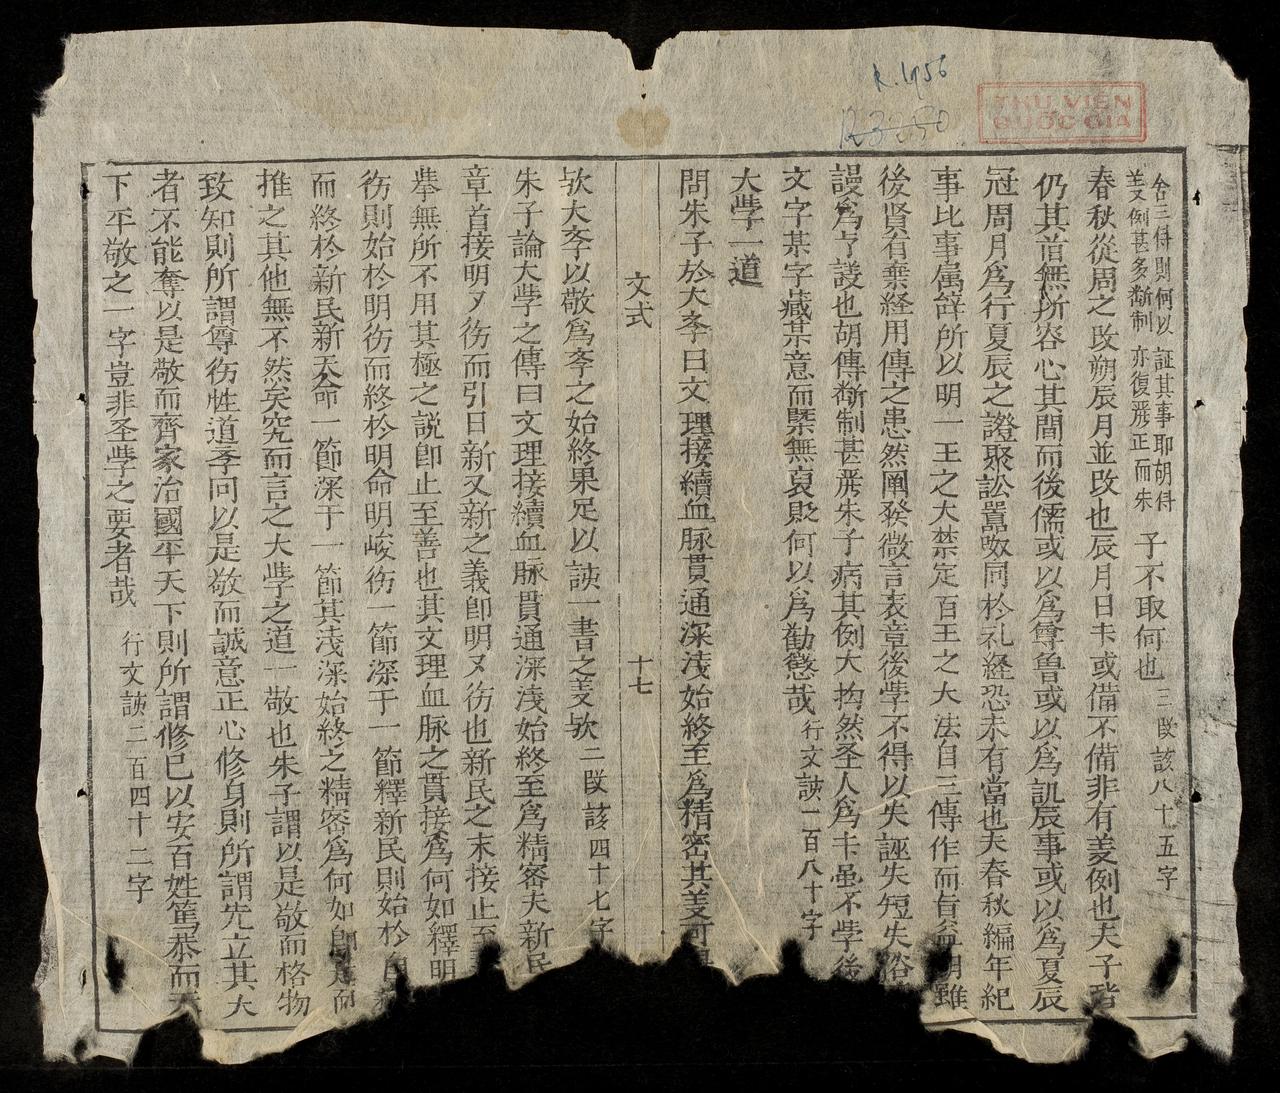 R.1956
R3250
THƯ VIỆN
QUỐC GIA
舍三傳則何以証其事耶胡傳
義例甚多断制亦復严正而朱
子不取何也三段該八十五字
春秋從周之改朔辰月並改也辰月日卡或備不備非有義例也夫子皆
仍其旧無所容心其間而後儒或以為尊魯或以為訊辰事或以為夏辰
冠周月為行夏辰之證聚訟囂呶同於礼経恐未有當也夫春秋編年紀
事比事属辞所以明一王之大禁定百王之大法自三傳作而旨益明雖
後賢有棄経用傳之患然闡發微言表章後斈不得以失誣失短失俗
謾為訾議也胡傳断制甚严朱子病其例大拘然圣人為卡虽不斈後
文字某字藏某意而槩無褒貶何以為勸懲哉行文該一百八十字
大斈一道
問朱子於大斈曰文理接續血脉貫通深浅始終至為精密其義可
文式
十七
欤大斈以敬為斈之始終果足以該一書之義欤二段該四十七字
朱子論大斈之傳曰文理接續血脉貫通深浅始終至為精密夫新民
章首接明又德而引日新又新之義即明又德也新民之末接止至
举無所不用其極之説即止至善也其文理血脉之貫接為何如釋明
德則始於明德而終於明命明峻德一節深于一節釋新民則始於自新
而終於新民新天命一節深于一節其浅深始終之精密為何如即是而
推之其他無不然矣究而言之大斈之道一敬也朱子謂以是敬而格物
致知則所謂尊德性道斈问以是敬而誠意正心修身則所謂先立其大
者不能奪以是敬而齊家治國平天下則所謂修己以安百姓篤恭而天
下平敬之一字豈非圣斈之要者哉行文該二百四十二字